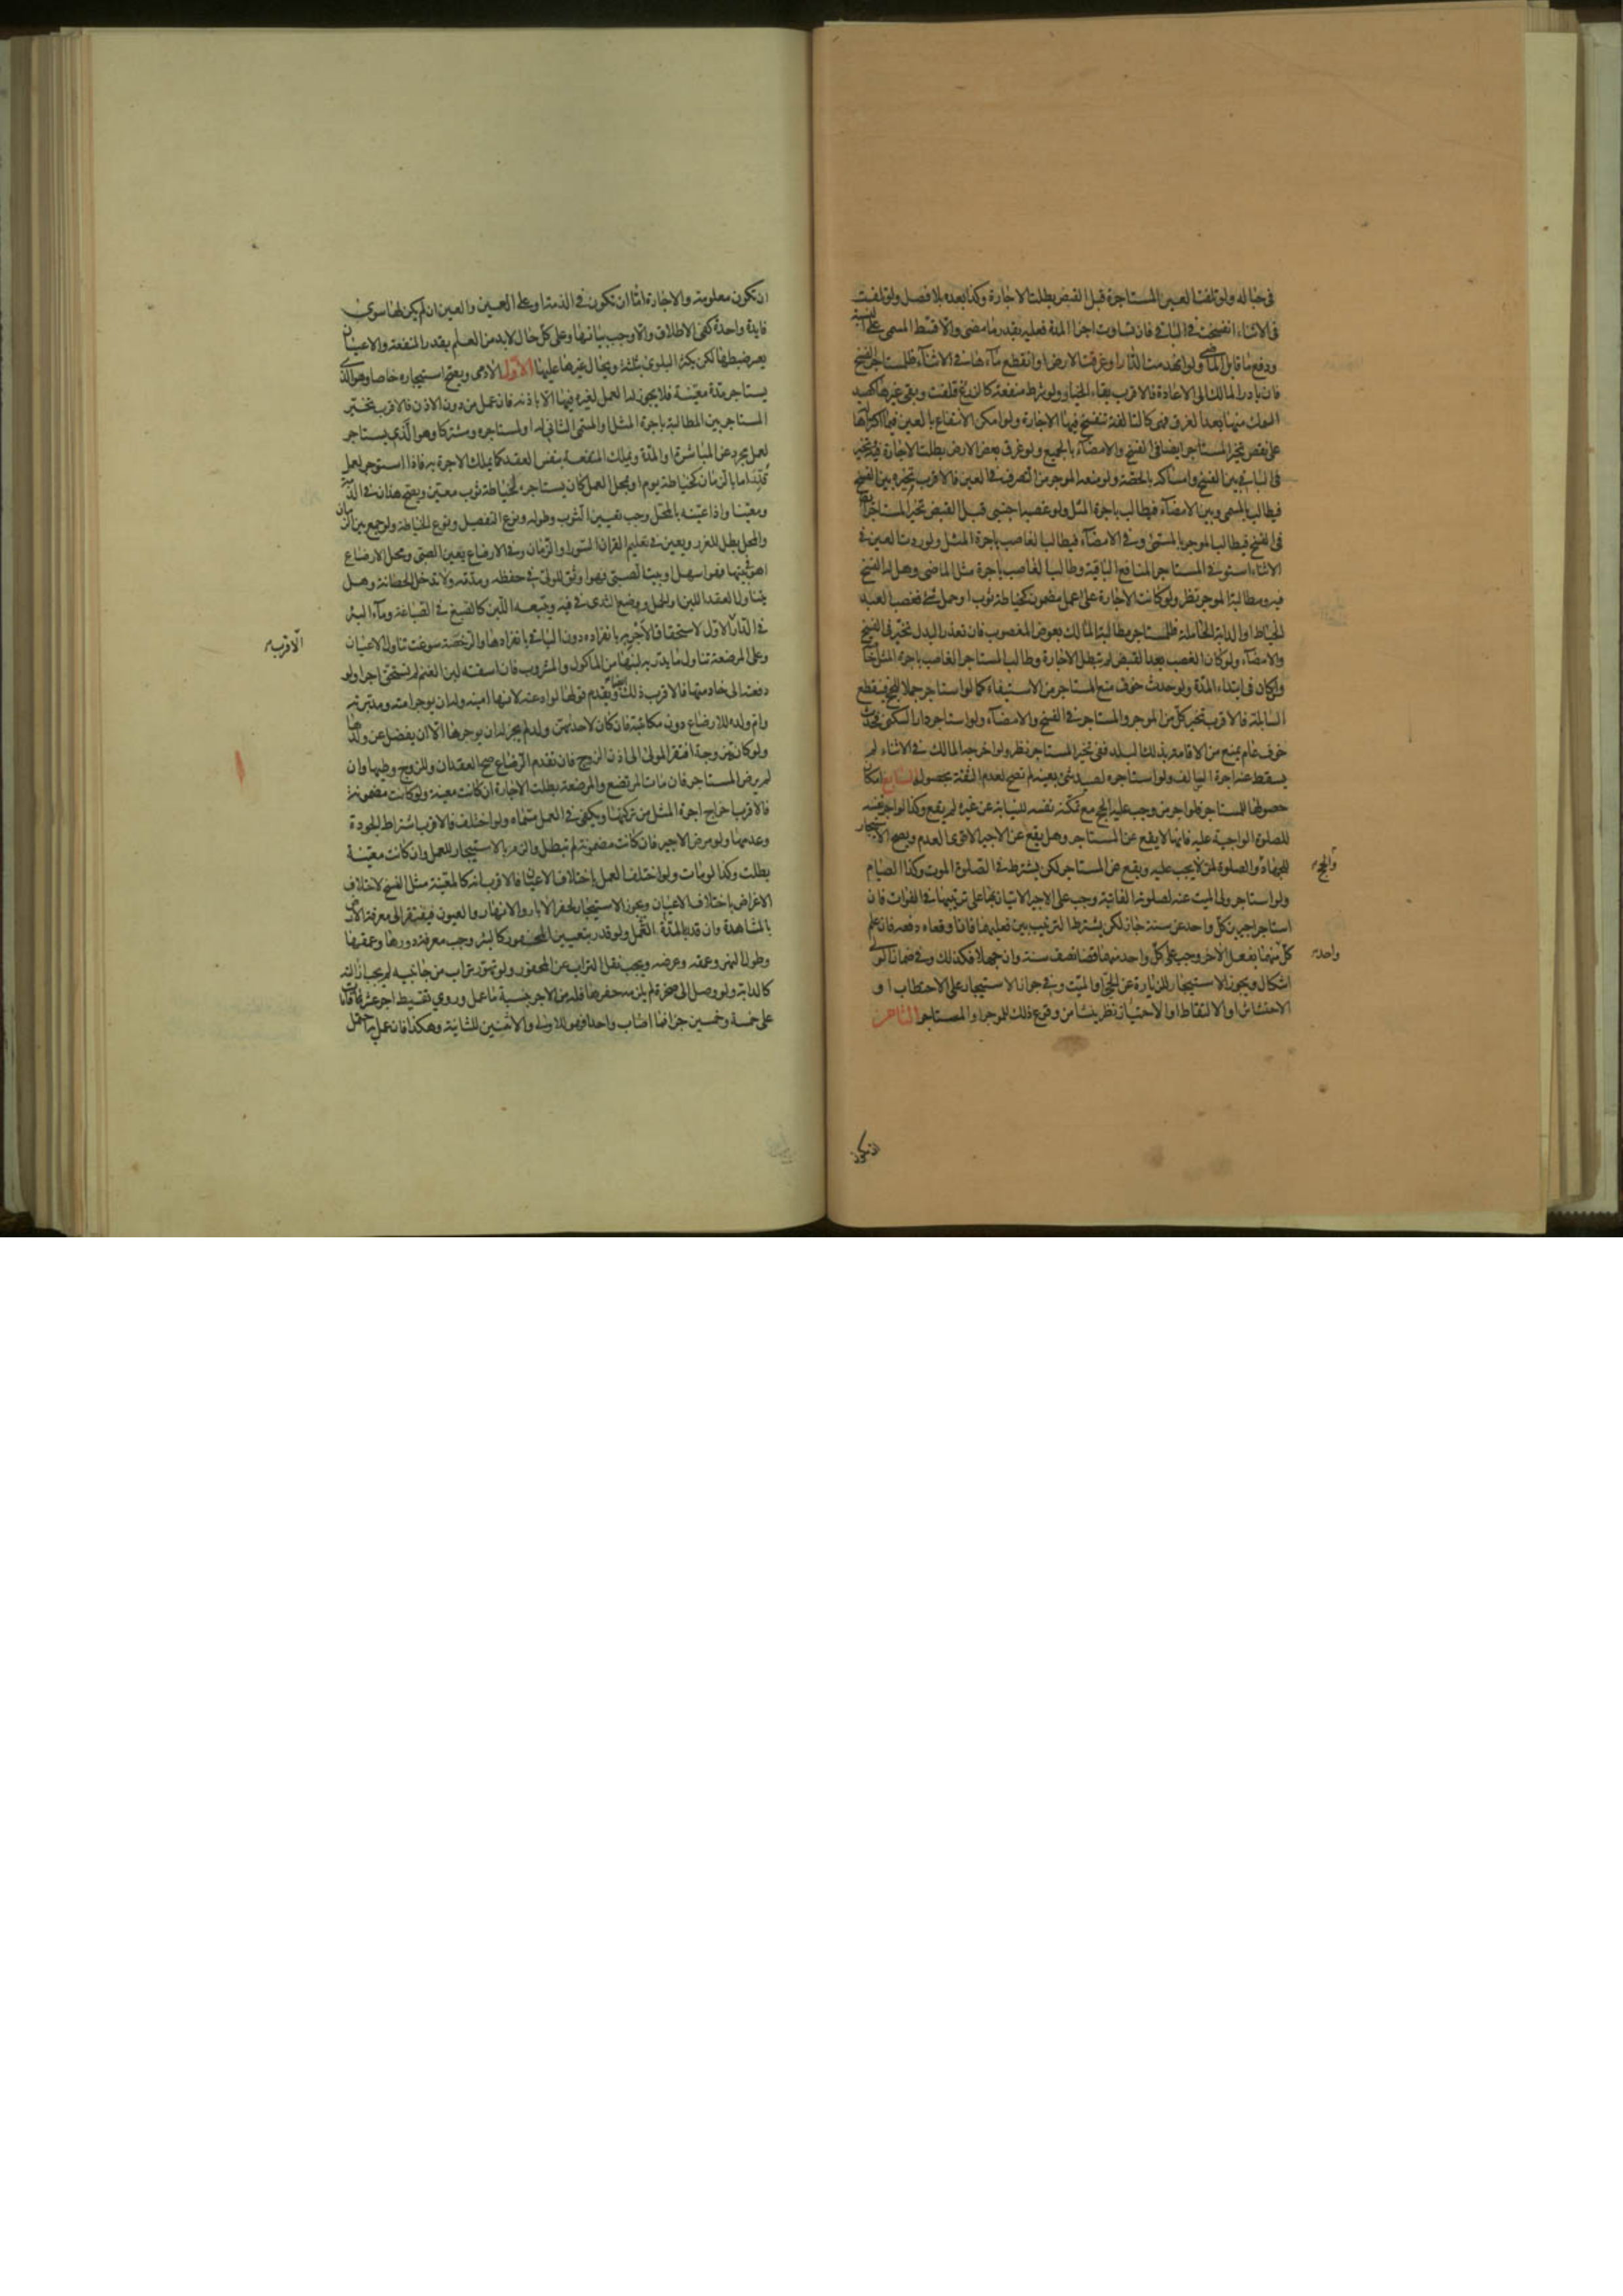 في حباله ولو تلفت العين المستاجرة قبل القبض بطلت الاجارة وكذا بعده بلا فصل ولو تلفت
في الاثناء انفسخت في الباقي فان تساوت اجزا المدة فعليه بقدر ما مضى والا قسط المسمى على النسبة
ودفع ما قابل الماضي ولو انهدمت الدار او غرقت الارض او انقطع ماءها في الاثناء فللمستاجر الفسخ
فان بادر المالك الى الاعادة فالاقرب بقاء الخيار ولو شرط منفعة كالزرع فتلفت وبقي غيرها كصيد
السمك منها بعد الغرق فهي كالتالفة تنفسخ فيها الاجارة ولو امكن الانتفاع بالعين فيما اكتراها
على نقص تخير المستاجر ايضا في الفسخ والامضاء بالجميع ولو غرق بعض الارض بطلت الاجارة فيه وتخير
في الباقي بين الفسخ وامساكه بالحصة ولو منعه الموجر من التصرف في العين فالاقرب تخيره بين الفسخ
فيطالب بالمسمى وبين الامضاء فيطالب باجرة المثل ولو غصبها اجنبي قبل القبض تخير المستاجر ايضا
في الفسخ فيطالب الموجر بالمسمى وفي الامضاء فيطالب الغاصب باجرة المثل ولو ردت العين في
الاثناء استوفى المستاجر المنافع الباقية وطالب الغاصب باجرة مثل الماضي وهل له الفسخ
فيه ومطالبة الموجر نظر ولو كانت الاجارة على عمل مضمون كخياطة ثوب او حمل شي فغصب العبد
الخياط او الدابة الحاملة فللمستاجر مطالبة المالك بعوض المغصوب فان تعذر البدل تخير في الفسخ
والامضاء ولو كان الغصب بعد القبض لم تبطل الاجارة وطالب المستاجر الغاصب باجرة المثل خاصة
وان كان في ابتداء المدة ولو حدث خوف منع المستاجر من الاستيفاء كما لو استاجر جملا للحج فينقطع
السابلة فالاقرب تخير كل من الموجر والمستاجر في الفسخ والامضاء ولو استاجر دارا للسكنى فحدث
خوف عام يمنع من الاقامة بذلك البلد ففي تخير المستاجر نظر ولو اخرجه المالك في الاثناء لم
يسقط عنه اجرة السالف ولو استاجره لصيد شئ بعينه لم تصح لعدم الثقة بحصوله السابع امكان
حصولها للمستاجر فلو اجر من وجب عليه الحج مع تمكنه نفسه للنيابة عن غيره لم يقع وكذا لو اجر نفسه
للصلوة الواجبة عليه فانها لا يقع عن المستاجر وهل يقع عن الاجير الاقوى العدم ويصح الاستيجار
للجهاد والصلوة لمن لا يجب عليه ويقع عن المستاجر لكن يشترط في الصلوة الموت وكذا الصيام
والحج
ولو استاجر ولي الميت عنه لصلوته الفائتة وجب على الاجير الاتيان بها على ترتيبها في الفوات فان
استاجر اجيرين كل واحد عن سنة جاز لكن يشترط الترتيب بين فعليهما فان اوقعاه دفعة فان علم
كل منهما بفعل الاخر وجب على كل واحد منهما قضا نصف سنة وان جهلا فكذلك وفي ضمانه
واحد
اشكال ويجوز الاستيجار للزيارة عن الحي والميت وفي جواز الاستيجار على الاحتطاب او
الاحتشاش او الالتقاط او الاحتياز نظر ينشا من وقوع ذلك للموجر او المستاجر الثامن
ان تكون
ان تكون معلومة والاجارة اما ان تكون في الذمة او على العين والعين ان لم يكن لها سوى
فايدة واحدة كفى الاطلاق والا وجب بيانها وعلى كل حال لابد من العلم بقدر المنفعة والاعيان
يعسر ضبطها لكن يكثر البلوى بثلثة ويحال غيرها عليها الاول الادمي ويصح استيجاره خاصا وهو الذي
يستاجر مدة معينة فلا يجوز له العمل لغيره فيها الا باذنه فان عمل من دون الاذن فالاقرب تخير
المستاجر بين المطالبة باجرة المثل او المسمى الثاني له او لمستاجره ومشتركا وهو الذي يستاجر
لعمل مجرد عن المباشرة او المدة ويملك المنفعة بنفس العقد كما يملك الاجرة به فاذا استوجر لعمل
قدر اما بالزمان كخياطة يوم او بمحل العمل كان يستاجره لخياطة ثوب معين ويصح هذان في الذمة
ومعينا واذا عينه بالمحل وجب تعيين الثوب وطوله ونوع التفصيل ونوع الخياطة ولو جمع بين الزمان
والمحل بطل للغرر ويعين في تعليم القران السورة او الزمان وفي الارضاع يعين الصبي ومحل الارضاع
اهو بيتها فهو اسهل او بيت الصبي فهو اوثق للولي في حفظه ومدته ولا تدخل الحضانة وهل
يتناول العقد اللبن او الحمل ووضع الثدي في فيه ويتبعه اللبن كالصبغ في الصباغة وماء البئر
في الدار الاول لاستحقاق الاجر به بانفراده دون الباقي بانفرادها والرخصة سوغت تناول الاعيان
الاقرب
وعلى المرضعة تناول ما يدر به لبنها من الماكول والمشروب فان اسقته لبن الغنم لم تستحق اجرا ولو
دفعته الى خادمتها فالاقرب ذلك ايضا ويقدم قولها لو ادعته لانها امينة وله ان يوجر امته ومدبرته
وام ولده للارضاع دون مكاتبته فان كان لاحديهن ولد لم يجز له ان يوجرها الا ان يفضل عن ولدها
ولو كان مزوجة افتقر المولى الى اذن الزوج فان تقدم الرضاع صح العقدان وللزوج وطيها وان
لم يرض المستاجر فان مات المرتضع او المرضعة بطلت الاجارة ان كانت معينة ولو كانت مضمونة
فالاقرب اخراج اجرة المثل من تركتها ويكفي في العمل مسماه ولو اختلف فالاقرب اشتراط الجودة
وعدمها ولو مرض الاجير فان كانت مضمونة لم تبطل والزم بالاستيجار للعمل وان كانت معينة
بطلت وكذا لو مات ولو اختلف العمل باختلاف الاعيان فالاقرب انه كالمعينة مثل النسخ لاختلاف
الاغراض باختلاف الاعيان ويجوز الاستيجار لحفر الابار والانهار والعيون فيفتقر الى معرفة الارض
بالمشاهدة وان قدر بالمدة العمل ولو قدر بتعيين المحفور كالبئر وجب معرفة دورها وعمقها
وطول النهر وعمقه وعرضه ويجب نقل التراب عن المحفور ولو تهور تراب من جانبيه لم يجب ازالته
كالدابة ولو وصل الى صخرة لم يلزمه حفرها فله من الاجر بنسبة ما عمل وروي تقسيط اجر عشر قامات
على خمسة وخمسين جزا فما اصاب واحدا فهو للاولى والاثنين للثانية وهكذا فان عمل به احتمل